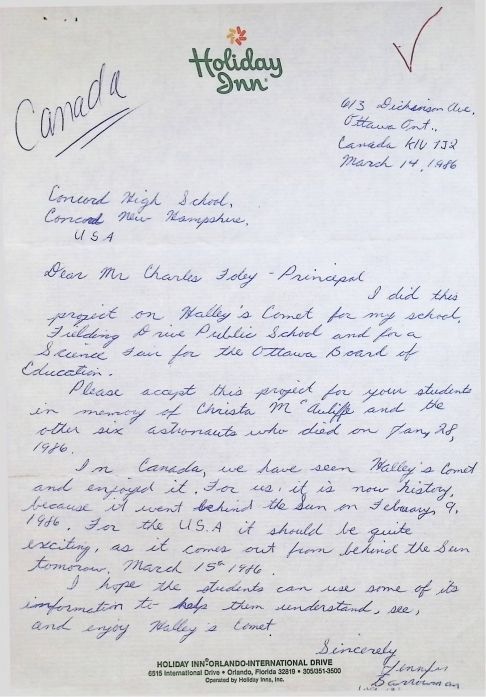 Holiday
Inn
Canada
613 Dickinson Ave,
Ottawa Ont.,
Canada K1V 7J2
March 14, 1986
Concord High School,
Concord New Hampshire,
USA
Dear Mr Charles Foley - Principal
I did this
project on Halley's Comet for my school,
Fielding Drive Public School and for a
Science Fair for the Ottawa Board of
Education.
Please accept this project for your students
in memory of Christa McAuliffe and the
other six astronauts who died on Jan, 28,
1986.
In Canada, we have seen Halley's Comet
and enjoyed it. For us, it is now history,
because it went behind the Sun on February, 9,
1986. For the U.S.A it should be quite
exciting, as it comes out from behind the Sun
tomorow, March 15th 1986.
I hope the students can use some of its
information to help them understand, see,
and enjoy Halley's Comet.
Sincerely
Jennifer
Barrowman
HOLIDAY INN® ORLANDO-INTERNATIONAL DRIVE
6515 International Drive • Orlando, Florida 32819 • 305/351-3500
Operated by Holiday Inns, Inc.